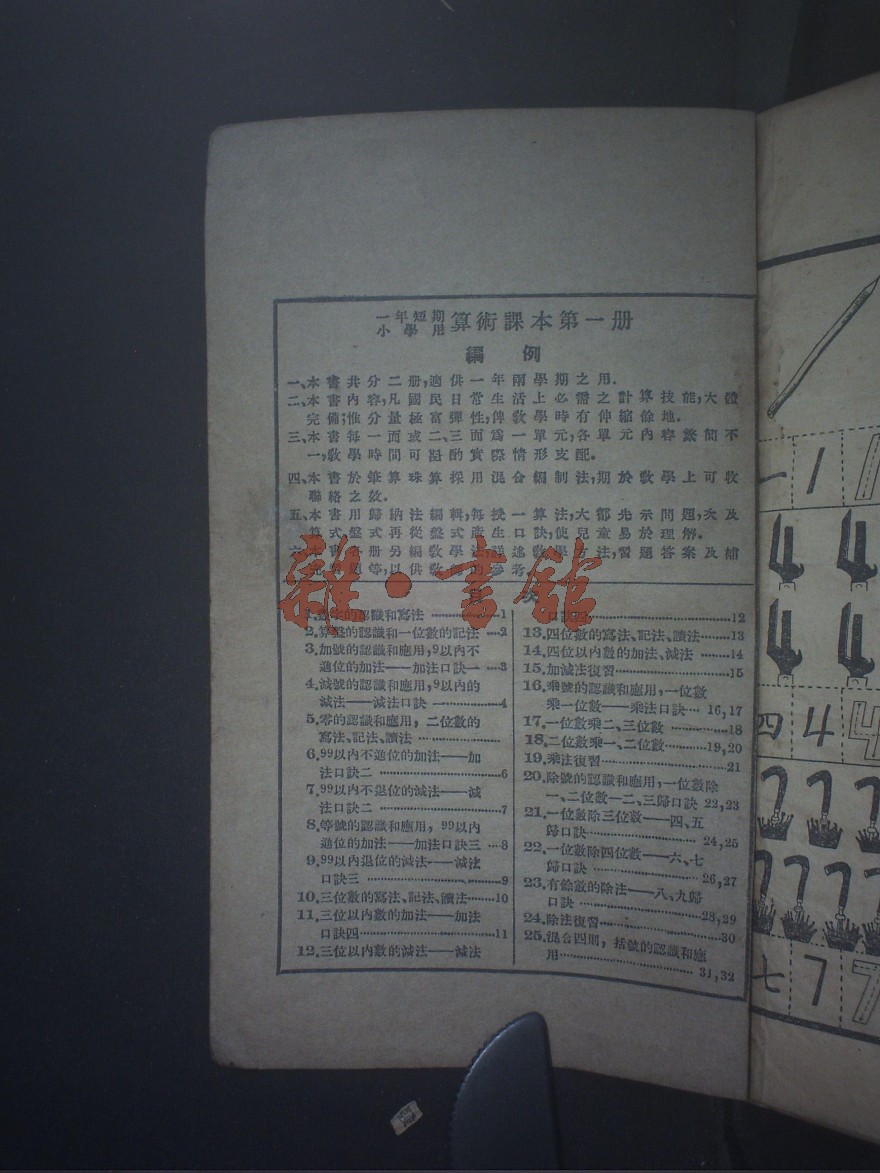 一年短期
小學用
算術課本第一册
編例
一、本書共分二册,適供一年兩學期之用.
二、本書內容,凡國民日常生活上必需之計算技能,大體
完備;惟分量極富彈性,俾敎學時有伸縮餘地.
三、本書每一面或二、三面爲一單元,各單元內容繁簡不
一,敎學時間可斟酌實際情形支配.
四、本書於筆算珠算採用混合編制法,期於敎學上可收
聯絡之效.
五、本書用歸納法編輯,每授一算法,大都先示問題,次及
算式盤式再從盤式產生口訣,使兒童易於理解.
六、本書各册另編敎學法,詳述敎學方法,習題答案及補
等,以供敎師的參考.
雜·書館
次
1. 的認識和寫法 1
2.算盤的認識和一位數的記法 2
3.加號的認識和應用,9以內不
進位的加法——加法口訣一 3
4.減號的認識和應用,9以內的
減法——減法口訣一 4
5.零的認識和應用,二位數的
寫法、記法、讀法
6.99以內不進位的加法——加
法口訣二 6
7.99以內不退位的減法——減
法口訣二 7
8.等號的認識和應用,99以內
進位的加法——加法口訣三 8
9.99以內退位的減法——減法
口訣三 9
10.三位數的寫法、記法、讀法 10
11.三位以內數的加法——加法
口訣四 11
12.三位以內數的減法——減法
口訣四 12
13.四位數的寫法、記法、讀法 13
14.四位以內數的加法、減法 14
15.加減法復習 15
16.乘號的認識和應用,一位數
乘一位數——乘法口訣 16,17
17.一位數乘二、三位數 18
18.二位數乘一、二位數 19,20
19.乘法復習 21
20.除號的認識和應用,一位數除
一、二位數—二、三歸口訣 22,23
21.一位數除三位數——四、五
歸口訣 24,25
22.一位數除四位數——六、七
歸口訣 26,27
23.有餘數的除法——八、九歸
口訣 28,29
24.除法復習 30
25.混合四則,括號的認識和應
用 31,32
一 1 1
四 4 4
七 7 7